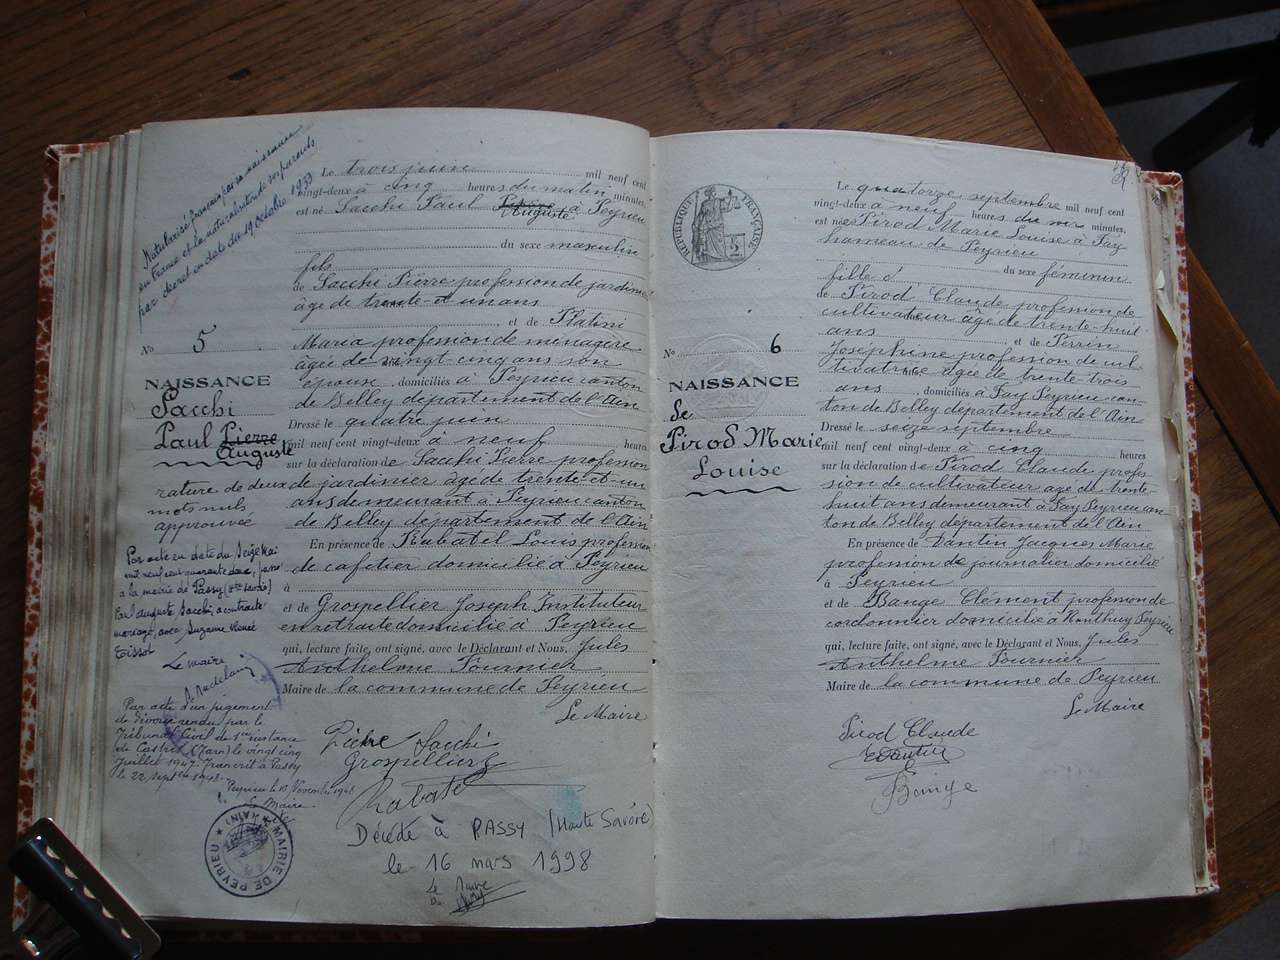 Naturalisé français par sa naissance
en France et la naturalisation de ses parents
par décret en date du 19 octobre 1933
No 5
NAISSANCE
Sacchi
Paul Pierre
Auguste
rature de deux
mots nuls
approuvée
Par acte en date du Seize Mai
mil neuf cent quarante deux,
à la mairie de Passy (Hte Savoie)
Paul Auguste Sacchi a contracté
mariage, avec Suzanne Renée
Tissot
Le maire
Par acte d'un jugement
de divorce rendu par le
Tribunal Civil de 1ère instance
de Castres (Tarn) le vingt cinq
Juillet 1947. Transcrit à Passy
le 22 septbre 1948.
Peyrieu le 15 Novembre 1948
Le Maire
MAIRIE DE PEYRIEU ★ (AIN) ★
Le trois juin mil neuf cent
vingt-deux à cinq heures du matin minutes,
est né Sacchi Paul
Auguste à Peyrieu
du sexe masculin
fils
de Sacchi Pierre profession de jardinier
âgé de trente-et-un ans
, et de Platini
Maria profession de ménagère
âgée de vingt cinq ans son
épouse, domiciliés à Peyrieu canton
de Belley département de l'Ain
Dressé le quatre juin
mil neuf cent vingt-deux à neuf heures
sur la déclaration de Sacchi Pierre profession
de jardinier âgé de trente-et-un
ans demeurant à Peyrieu canton
de Belley département de l'Ain
En présence de Rabatel Louis profession
de cafetier domicilié à Peyrieu
à
et de Grospellier Joseph Instituteur
en retraite domicilié à Peyrieu
qui, lecture faite, ont signé, avec le Déclarant et Nous, Jules
Anthelme Fournier
Maire de la commune de Peyrieu
Le Maire
Pierre Sacchi
Grospellier
Rabatel
Décédé à PASSY (Haute Savoie)
le 16 mars 1998
Le Maire
RÉPUBLIQUE FRANÇAISE
No 6
NAISSANCE
de
Pirod Marie
Louise
Le quatorze septembre mil neuf cent
vingt-deux à neuf heures du minutes,
est née Pirod Marie Louise à Fay
hameau de Peyrieu
du sexe féminin
fille d
de Pirod Claude profession de
cultivateur âgé de trente-huit
ans, et de Perrin
Joséphine profession de cul-
tivatrice âgée de trente-trois
ans domiciliés à Fay Peyrieu can-
ton de Belley département de l'Ain
Dressé le seize septembre
mil neuf cent vingt-deux à cinq heures
sur la déclaration de Pirod Claude profes-
sion de cultivateur âgé de trente-
huit ans demeurant à Fay Peyrieu can
ton de Belley département de l'Ain
En présence de Dantin Jacques Marie
profession de journalier domicilié
à Peyrieu
et de Bange Clément profession de
cordonnier domicilié à Peyrieu
qui, lecture faite, ont signé, avec le Déclarant et Nous, Jules
Anthelme Fournier
Maire de la commune de Peyrieu
Le Maire
Pirod Claude